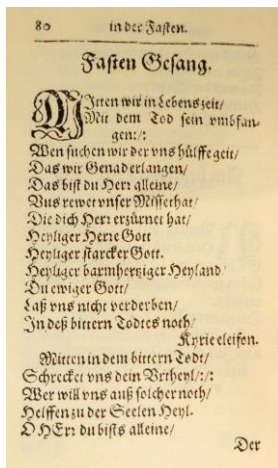 80 in der Fasten.
Fasten Gesang.
MItten wir in Lebens zeit/
Mit dem Tod sein vmbfan-
gen:/:
Wen suchen wir der vns hülffe geit/
Das wir Genad erlangen/
Das bist du Herr alleine/
Vns rewet vnser Missethat/
Die dich Herr erzürnet hat/
Heyliger Herre Gott
Heyliger starcker Gott.
Heyliger barmhertziger Heyland
Du ewiger Gott/
Laß vns nicht verderben/
In deß bittern Todtes noth/
Kyrie eleison.
Mitten in dem bittern Todt/
Schrecket vns dein Vrtheyl/:/:
Wer will vns auß solcher noth/
Helffen zu der Seelen Heyl.
O HErr du bists alleine/
Der